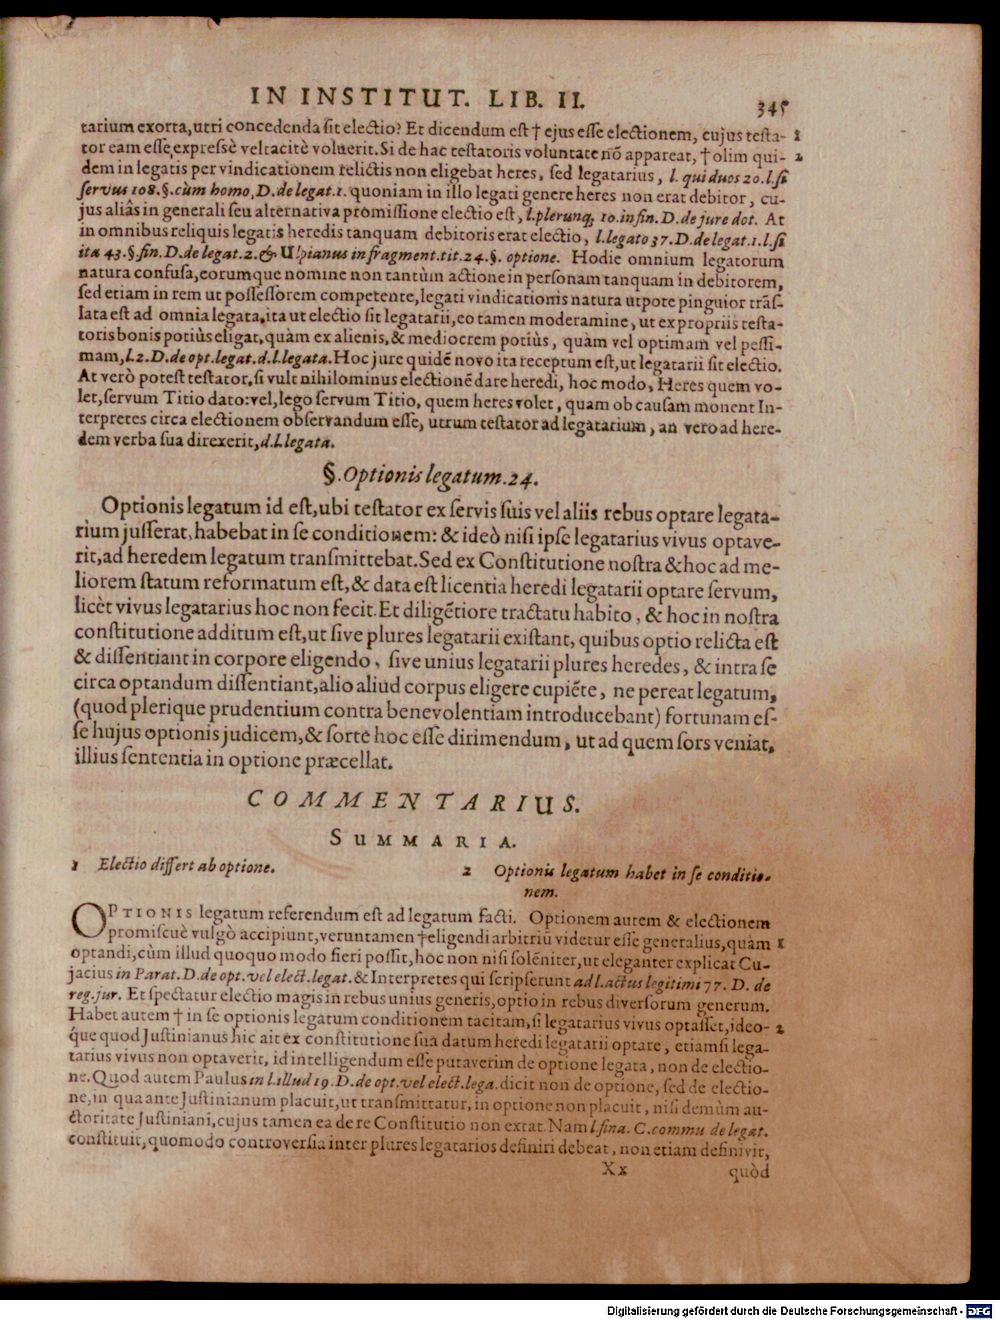 IN INSTITUT. LIB. II. 345
tarium exorta, utri concedenda sit electio? Et dicendum est † ejus esse electionem, cujus testa- 1
tor eam esse, expressè vel tacitè voluerit. Si de hac testatoris voluntate nõ appareat, † olim qui- 2
dem in legatis per vindicationem relictis non eligebat heres, sed legatarius, l. qui duos 20. l. si
servus 108. §. cùm homo, D. de legat. 1. quoniam in illo legati genere heres non erat debitor, cu-
jus aliàs in generali seu alternativa promissione electio est, l. plerunq; 10. in fin. D. de jure dot. At
in omnibus reliquis legatis heredis tanquam debitoris erat electio, l. legato 37. D. de legat. 1. l. si
ita 43. §. fin. D. de legat. 2. & Ulpianus in fragment. tit. 24. §. optione. Hodie omnium legatorum
natura confusa, eorumque nomine non tantùm actione in personam tanquam in debitorem,
sed etiam in rem ut possessorem competente, legati vindicationis natura utpote pinguior trãs-
lata est ad omnia legata, ita ut electio sit legatarii, eo tamen moderamine, ut ex propriis testa-
toris bonis potiùs eligat, quàm ex alienis, & mediocrem potiùs, quàm vel optimam vel pessi-
mam, l. 2. D. de opt. legat. d. l. legata. Hoc jure quidẽ novo ita receptum est, ut legatarii sit electio.
At verò potest testator, si vult nihilominus electionẽ dare heredi, hoc modo, Heres quem vo-
let, servum Titio dato: vel, lego servum Titio, quem heres volet, quam ob causam monent In-
terpretes circa electionem observandum esse, utrum testator ad legatarium, an vero ad here-
dem verba sua direxerit, d. l. legata.
§. Optionis legatum. 24.
Optionis legatum id est, ubi testator ex servis suis vel aliis rebus optare legata-
rium jusserat, habebat in se conditionem: & ideò nisi ipse legatarius vivus optave-
rit, ad heredem legatum transmittebat. Sed ex Constitutione nostra & hoc ad me-
liorem statum reformatum est, & data est licentia heredi legatarii optare servum,
licèt vivus legatarius hoc non fecit. Et diligẽtiore tractatu habito, & hoc in nostra
constitutione additum est, ut sive plures legatarii existant, quibus optio relicta est
& dissentiant in corpore eligendo, sive unius legatarii plures heredes, & intra se
circa optandum dissentiant, alio aliud corpus eligere cupiẽte, ne pereat legatum,
(quod plerique prudentium contra benevolentiam introducebant) fortunam es-
se hujus optionis judicem, & sorte hoc esse dirimendum, ut ad quem sors veniat,
illius sententia in optione præcellat.
COMMENTARIUS.
SUMMARIA.
1 Electio differt ab optione.
2 Optionis legatum habet in se conditio-
nem.
OPTIONIS legatum referendum est ad legatum facti. Optionem autem & electionem
promiscuè vulgò accipiunt, veruntamen † eligendi arbitriũ videtur esse generalius, quàm 1
optandi, cùm illud quoquo modo fieri possit, hoc non nisi solẽniter, ut eleganter explicat Cu-
jacius in Parat. D. de opt. vel elect. legat. & Interpretes qui scripserunt ad l. actus legitimi 77. D. de
reg. jur. Et spectatur electio magis in rebus unius generis, optio in rebus diversorum generum.
Habet autem † in se optionis legatum conditionem tacitam, si legatarius vivus optasset, ideo- 2
que quod Justinianus hic ait ex constitutione sua datum heredi legatarii optare, etiamsi lega-
tarius vivus non optaverit, id intelligendum esse putaverim de optione legata, non de electio-
ne. Quod autem Paulus in l. illud 19. D. de opt. vel elect. lega. dicit non de optione, sed de electio-
ne, in qua ante Justinianum placuit, ut transmittatur, in optione non placuit, nisi demùm au-
ctoritate Justiniani, cujus tamen ea de re Constitutio non extat. Nam l. fina. C. commu de legat.
constituit, quomodo controversia inter plures legatarios definiri debeat, non etiam definivit,
Xx quòd
Digitalisierung gefördert durch die Deutsche Forschungsgemeinschaft - DFG